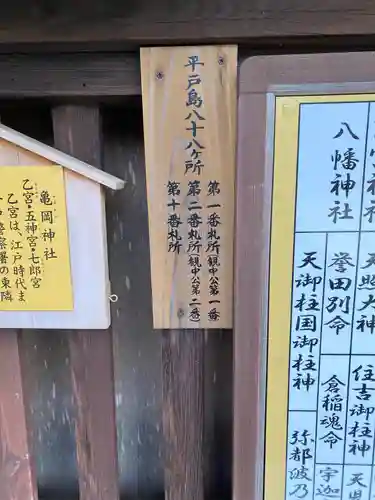 平戸島八十八ヶ所
第一番札所(観中公第一番)
第二番札所(観中公第二番)
第十番札所
亀岡神社
乙宮・五神宮・七郎宮
乙宮は、江戸時代ま
戸警察署の東隣
八幡神社
誉田別命
天照大
天御柱国御柱神
倉稲魂命
住吉御柱神
弥都波乃
宇迦